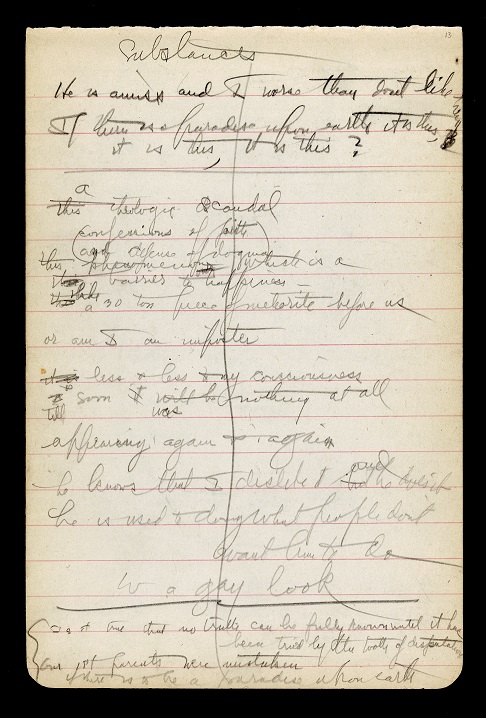 13
Substances
He is amiss and I worse than don't like
If there is a paradise upon earth it is this,
it is this, it is this?
a
this theologic scandal
(confessions of faith
and defense of dogma)
this phenomenon which is a
barrier to happiness —
a 30 ton piece of meteorite before us
or am I an imposter
it is less & less to my consciousness
soon it will be nothing at all
till was
appearing again & again
he knows that I dislike it and
he is used to doing what people don't
want him to do
w a gay look
Is it true that no truth can be fully known until it has
been tried by the tooth of disputation
our 1st parents were mistaken
there is to be a paradise upon earth